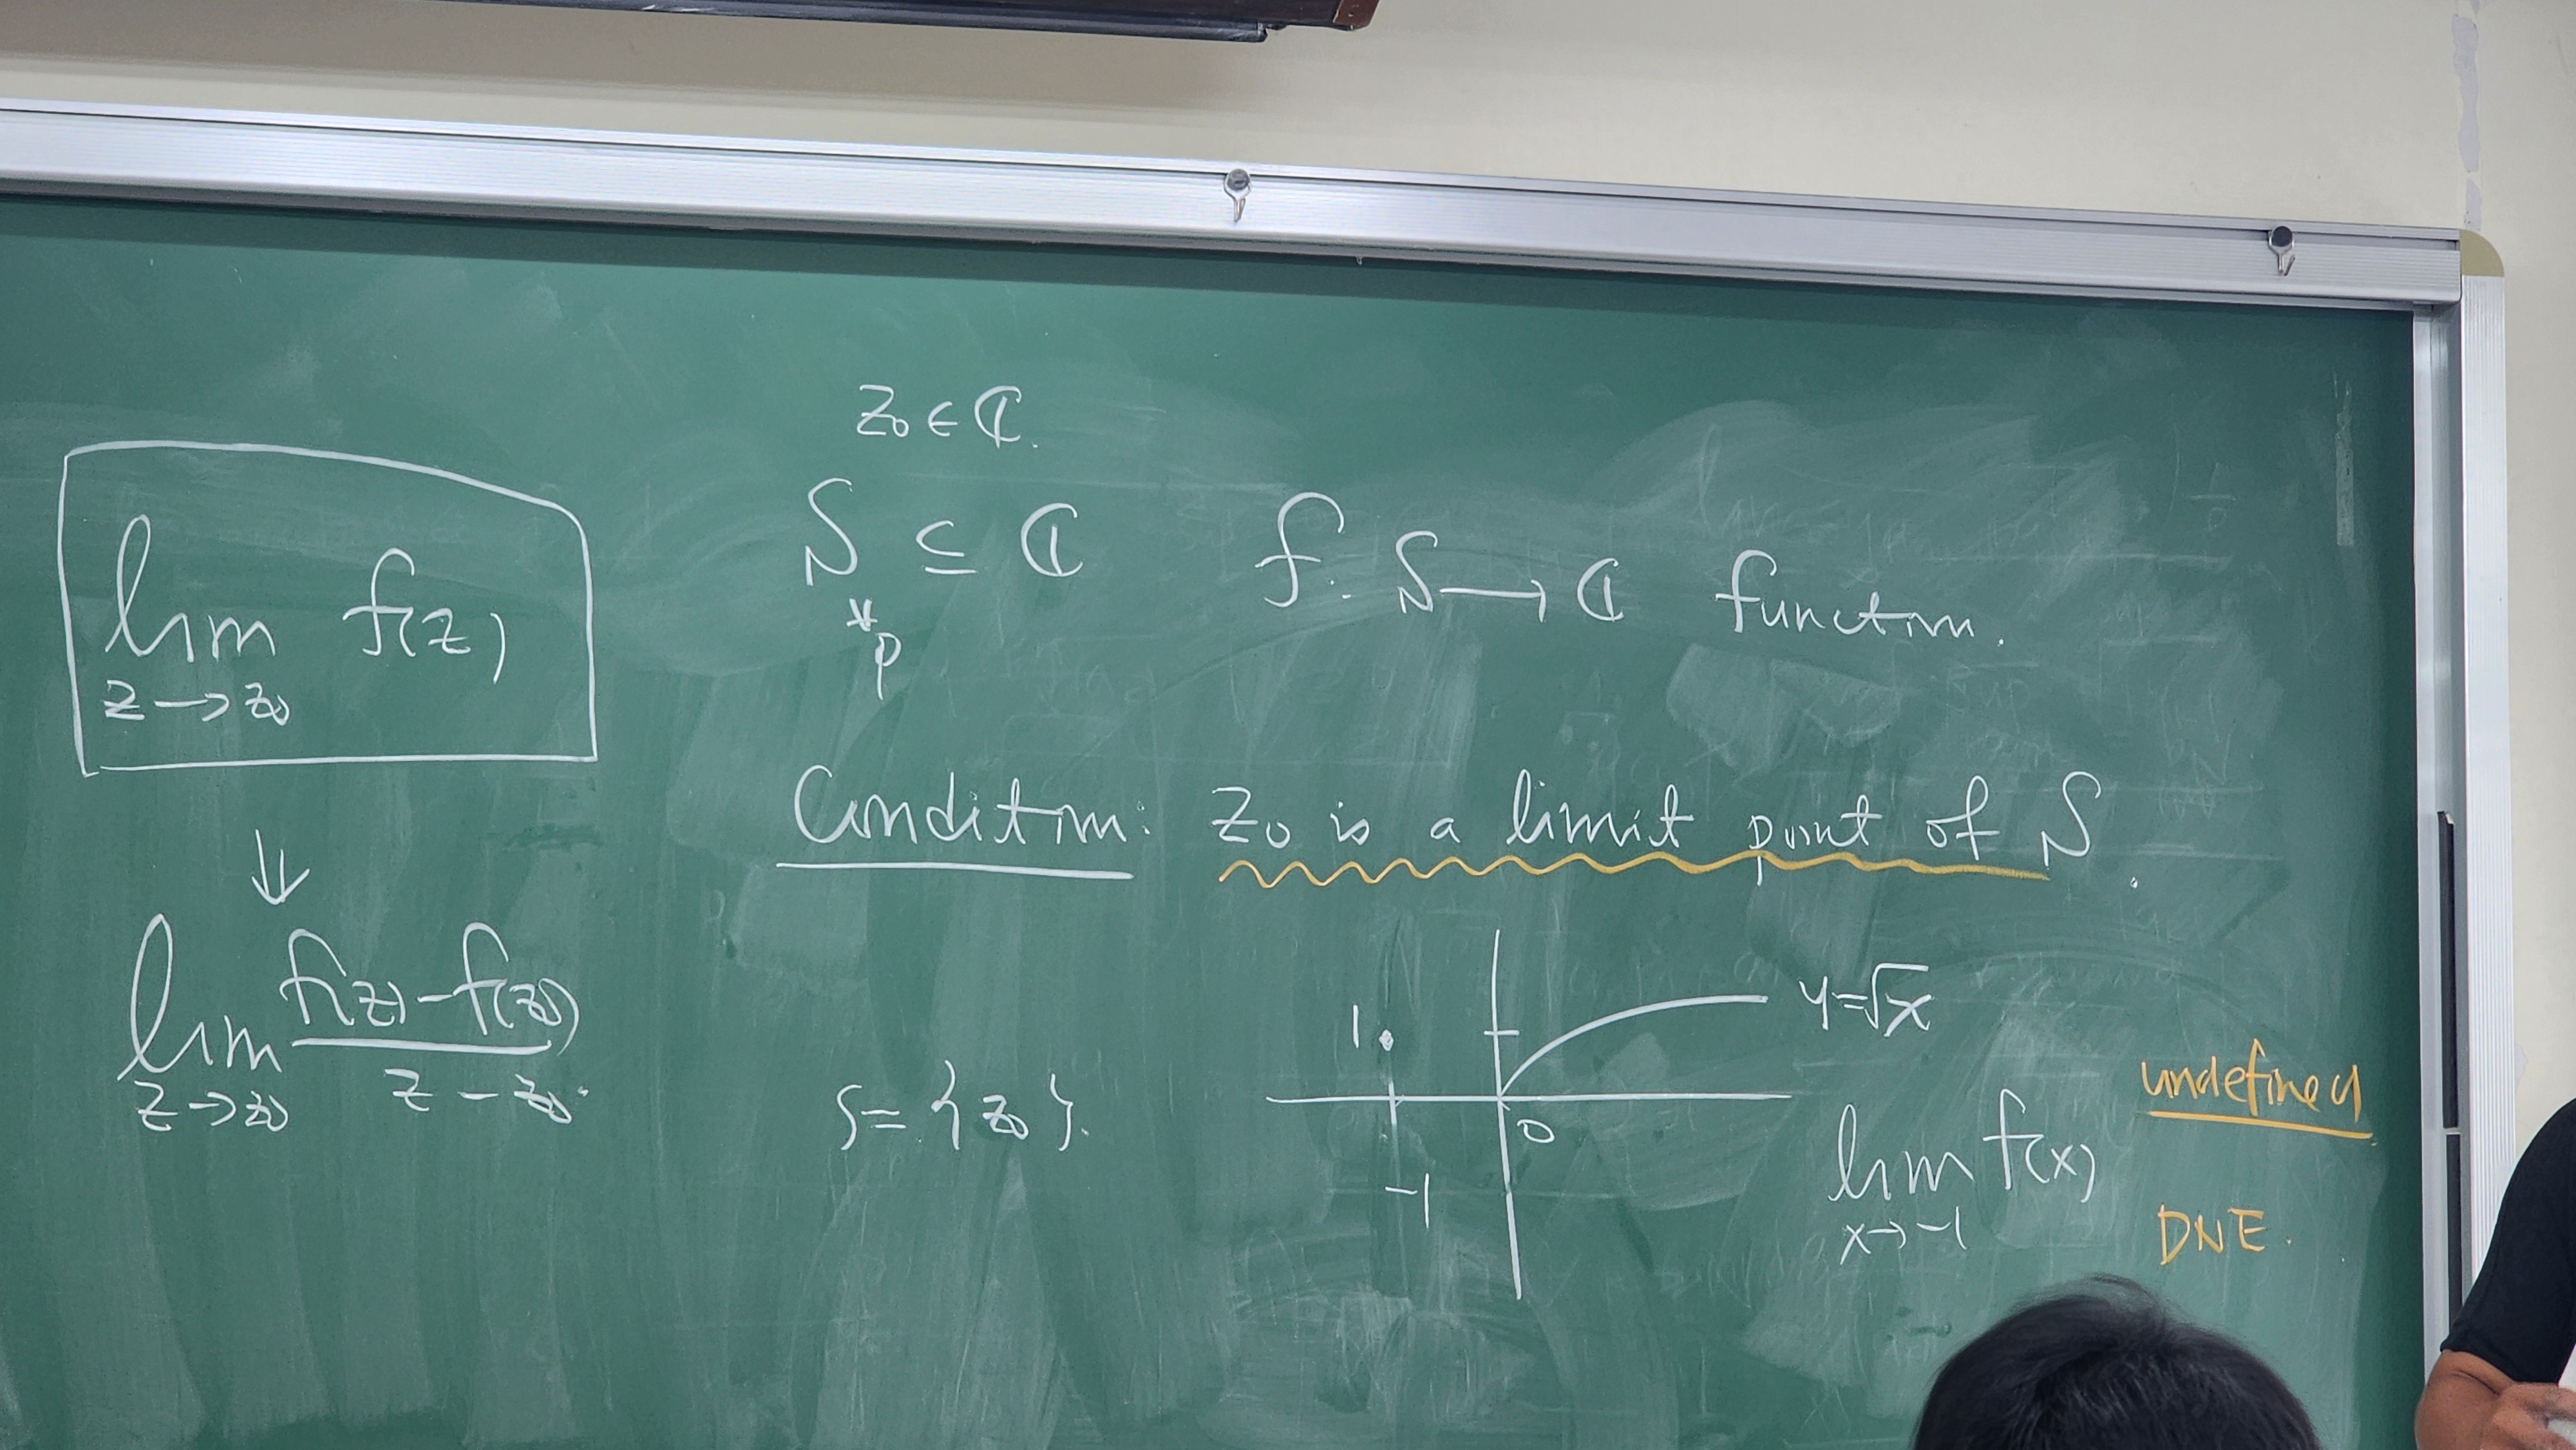 lim f(z)
z→z₀
⇓
lim (f(z)-f(z₀))/(z-z₀)
z→z₀
z₀∈ℂ.
S ⊆ ℂ
p
f: S→ℂ function.
Condition: z₀ is a limit point of S.
S={z₀}.
1
-1
0
y=√x
lim f(x)
x→-1
undefined
DNE.